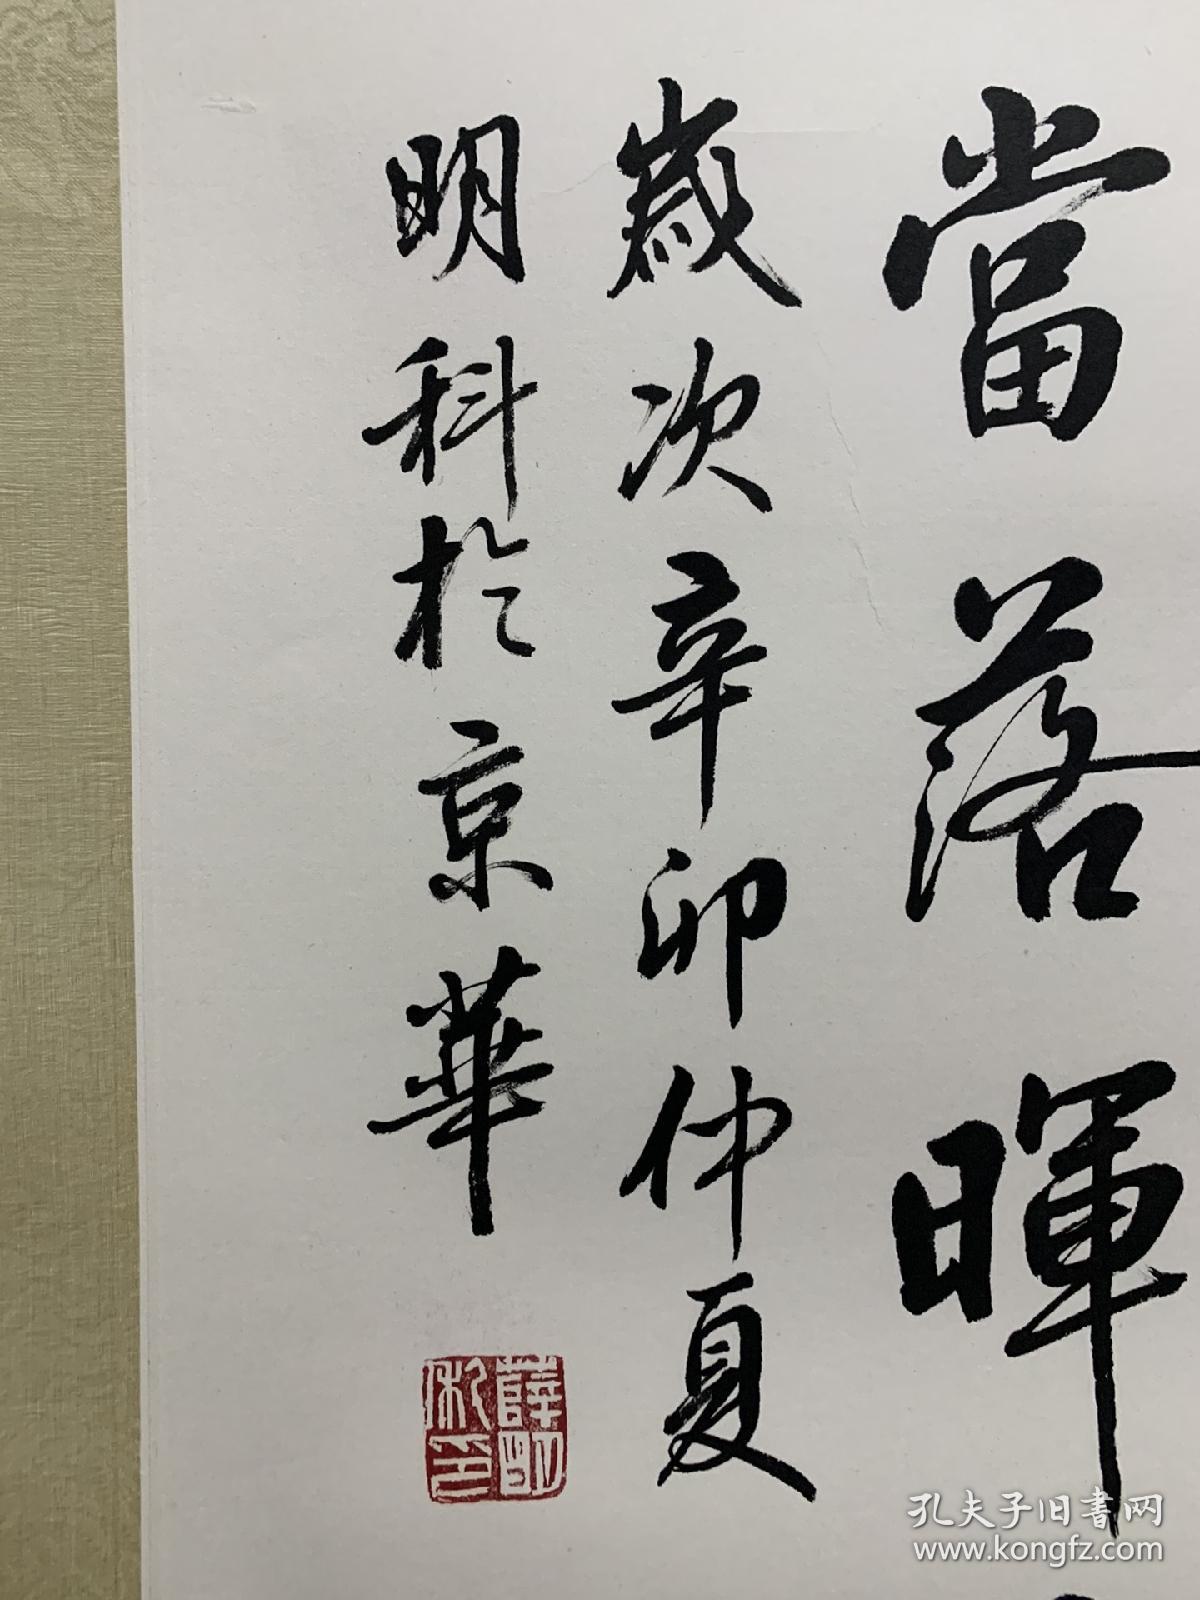 當落暉
歲次辛卯仲夏
明科於京華
薛明
科印
孔夫子旧书网
www.kongfz.com